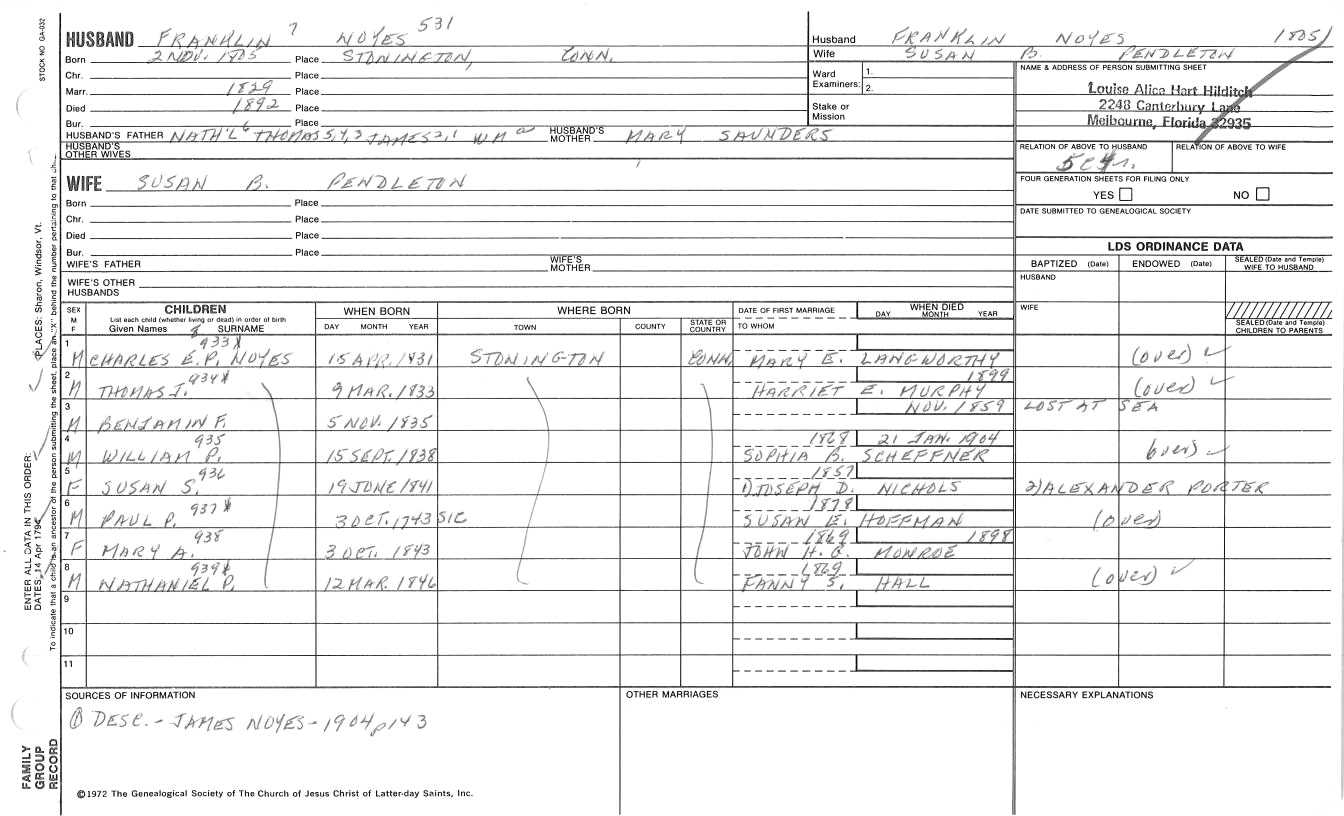 STOCK NO. GA-032
HUSBAND FRANKLIN 7 NOYES 531
Born 2 NOV. 1805 Place STONINGTON, CONN.
Chr. Place
Marr. 1829 Place
Died 1892 Place
Bur. Place
HUSBAND'S FATHER NATH'L 6 THOMAS 5,4,3 JAMES 2,1 WM a HUSBAND'S MOTHER MARY SAUNDERS
HUSBAND'S OTHER WIVES
WIFE SUSAN B. PENDLETON
Born Place
Chr. Place
Died Place
Bur. Place
WIFE'S FATHER WIFE'S MOTHER
WIFE'S OTHER HUSBANDS
Husband FRANKLIN NOYES 1805
Wife SUSAN B. PENDLETON
Ward Examiners: 1. 2.
Stake or Mission
NAME & ADDRESS OF PERSON SUBMITTING SHEET
Louise Alice Hart Hilditch
2248 Canterbury Lane
Melbourne, Florida 32935
RELATION OF ABOVE TO HUSBAND RELATION OF ABOVE TO WIFE
FOUR GENERATION SHEETS FOR FILING ONLY
YES NO
DATE SUBMITTED TO GENEALOGICAL SOCIETY
LDS ORDINANCE DATA
BAPTIZED (Date) ENDOWED (Date) SEALED (Date and Temple) WIFE TO HUSBAND
HUSBAND
WIFE
SEALED (Date and Temple) CHILDREN TO PARENTS
SEX M F CHILDREN WHEN BORN WHERE BORN DATE OF FIRST MARRIAGE WHEN DIED
List each child (whether living or dead) in order of birth
Given Names 8 SURNAME DAY MONTH YEAR TOWN COUNTY STATE OR COUNTRY TO WHOM DAY MONTH YEAR
1 933X
M CHARLES E.P. NOYES 15 APR. 1831 STONINGTON CONN. MARY E. LANGWORTHY (over) ✓
2 934X 1899
M THOMAS J. 9 MAR. 1833 HARRIET E. MURPHY (over) ✓
3 NOV. 1859 LOST AT SEA
M BENJAMIN F. 5 NOV. 1835
4 935 1868 21 JAN. 1904
M WILLIAM P. 15 SEPT. 1838 SOPHIA B. SCHEFFNER over) ✓
5 936 1857
F SUSAN S. 19 JUNE 1841 1) JOSEPH D. NICHOLS 2) ALEXANDER PORTER
6 937X 1878
M PAUL P. 3 OCT. 1743 SIC SUSAN E. HOFFMAN (over)
7 938 1869 1898
F MARY A. 3 OCT. 1843 JOHN H. G. MONROE
8 939X 1869
M NATHANIEL P. 12 MAR. 1846 FANNY S. HALL (over) ✓
9
10
11
SOURCES OF INFORMATION OTHER MARRIAGES NECESSARY EXPLANATIONS
① DESC. - JAMES NOYES - 1904 p 143
©1972 The Genealogical Society of The Church of Jesus Christ of Latter-day Saints, Inc.
FAMILY GROUP RECORD
ENTER ALL DATA IN THIS ORDER:
DATES: 14 Apr 1794 PLACES: Sharon, Windsor, Vt.
To indicate that a child is an ancestor of the person submitting the sheet, place an "X" behind the number pertaining to that ch